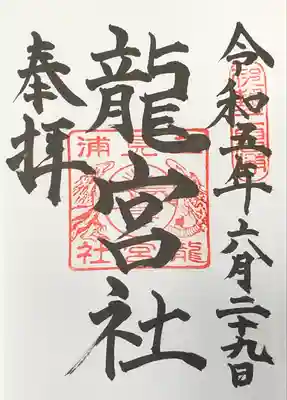 令和五年六月二十九日
龍宮社
奉拝